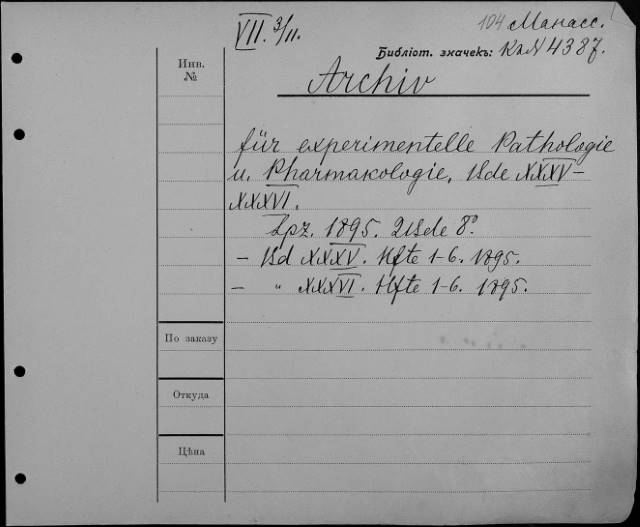 VII. 3/II. 104 Манасс.
Библіот. значекъ: КлN 4387.
Инв.
№
Archiv
für experimentelle Pathologie
u. Pharmakologie. Bde XXXV–
XXXVI.
Lpz. 1895. 2Bde 8º
– Bd XXXV. Hfte 1-6. 1895.
– " XXXVI. Hfte 1-6. 1895.
По заказу
Откуда
Цѣна